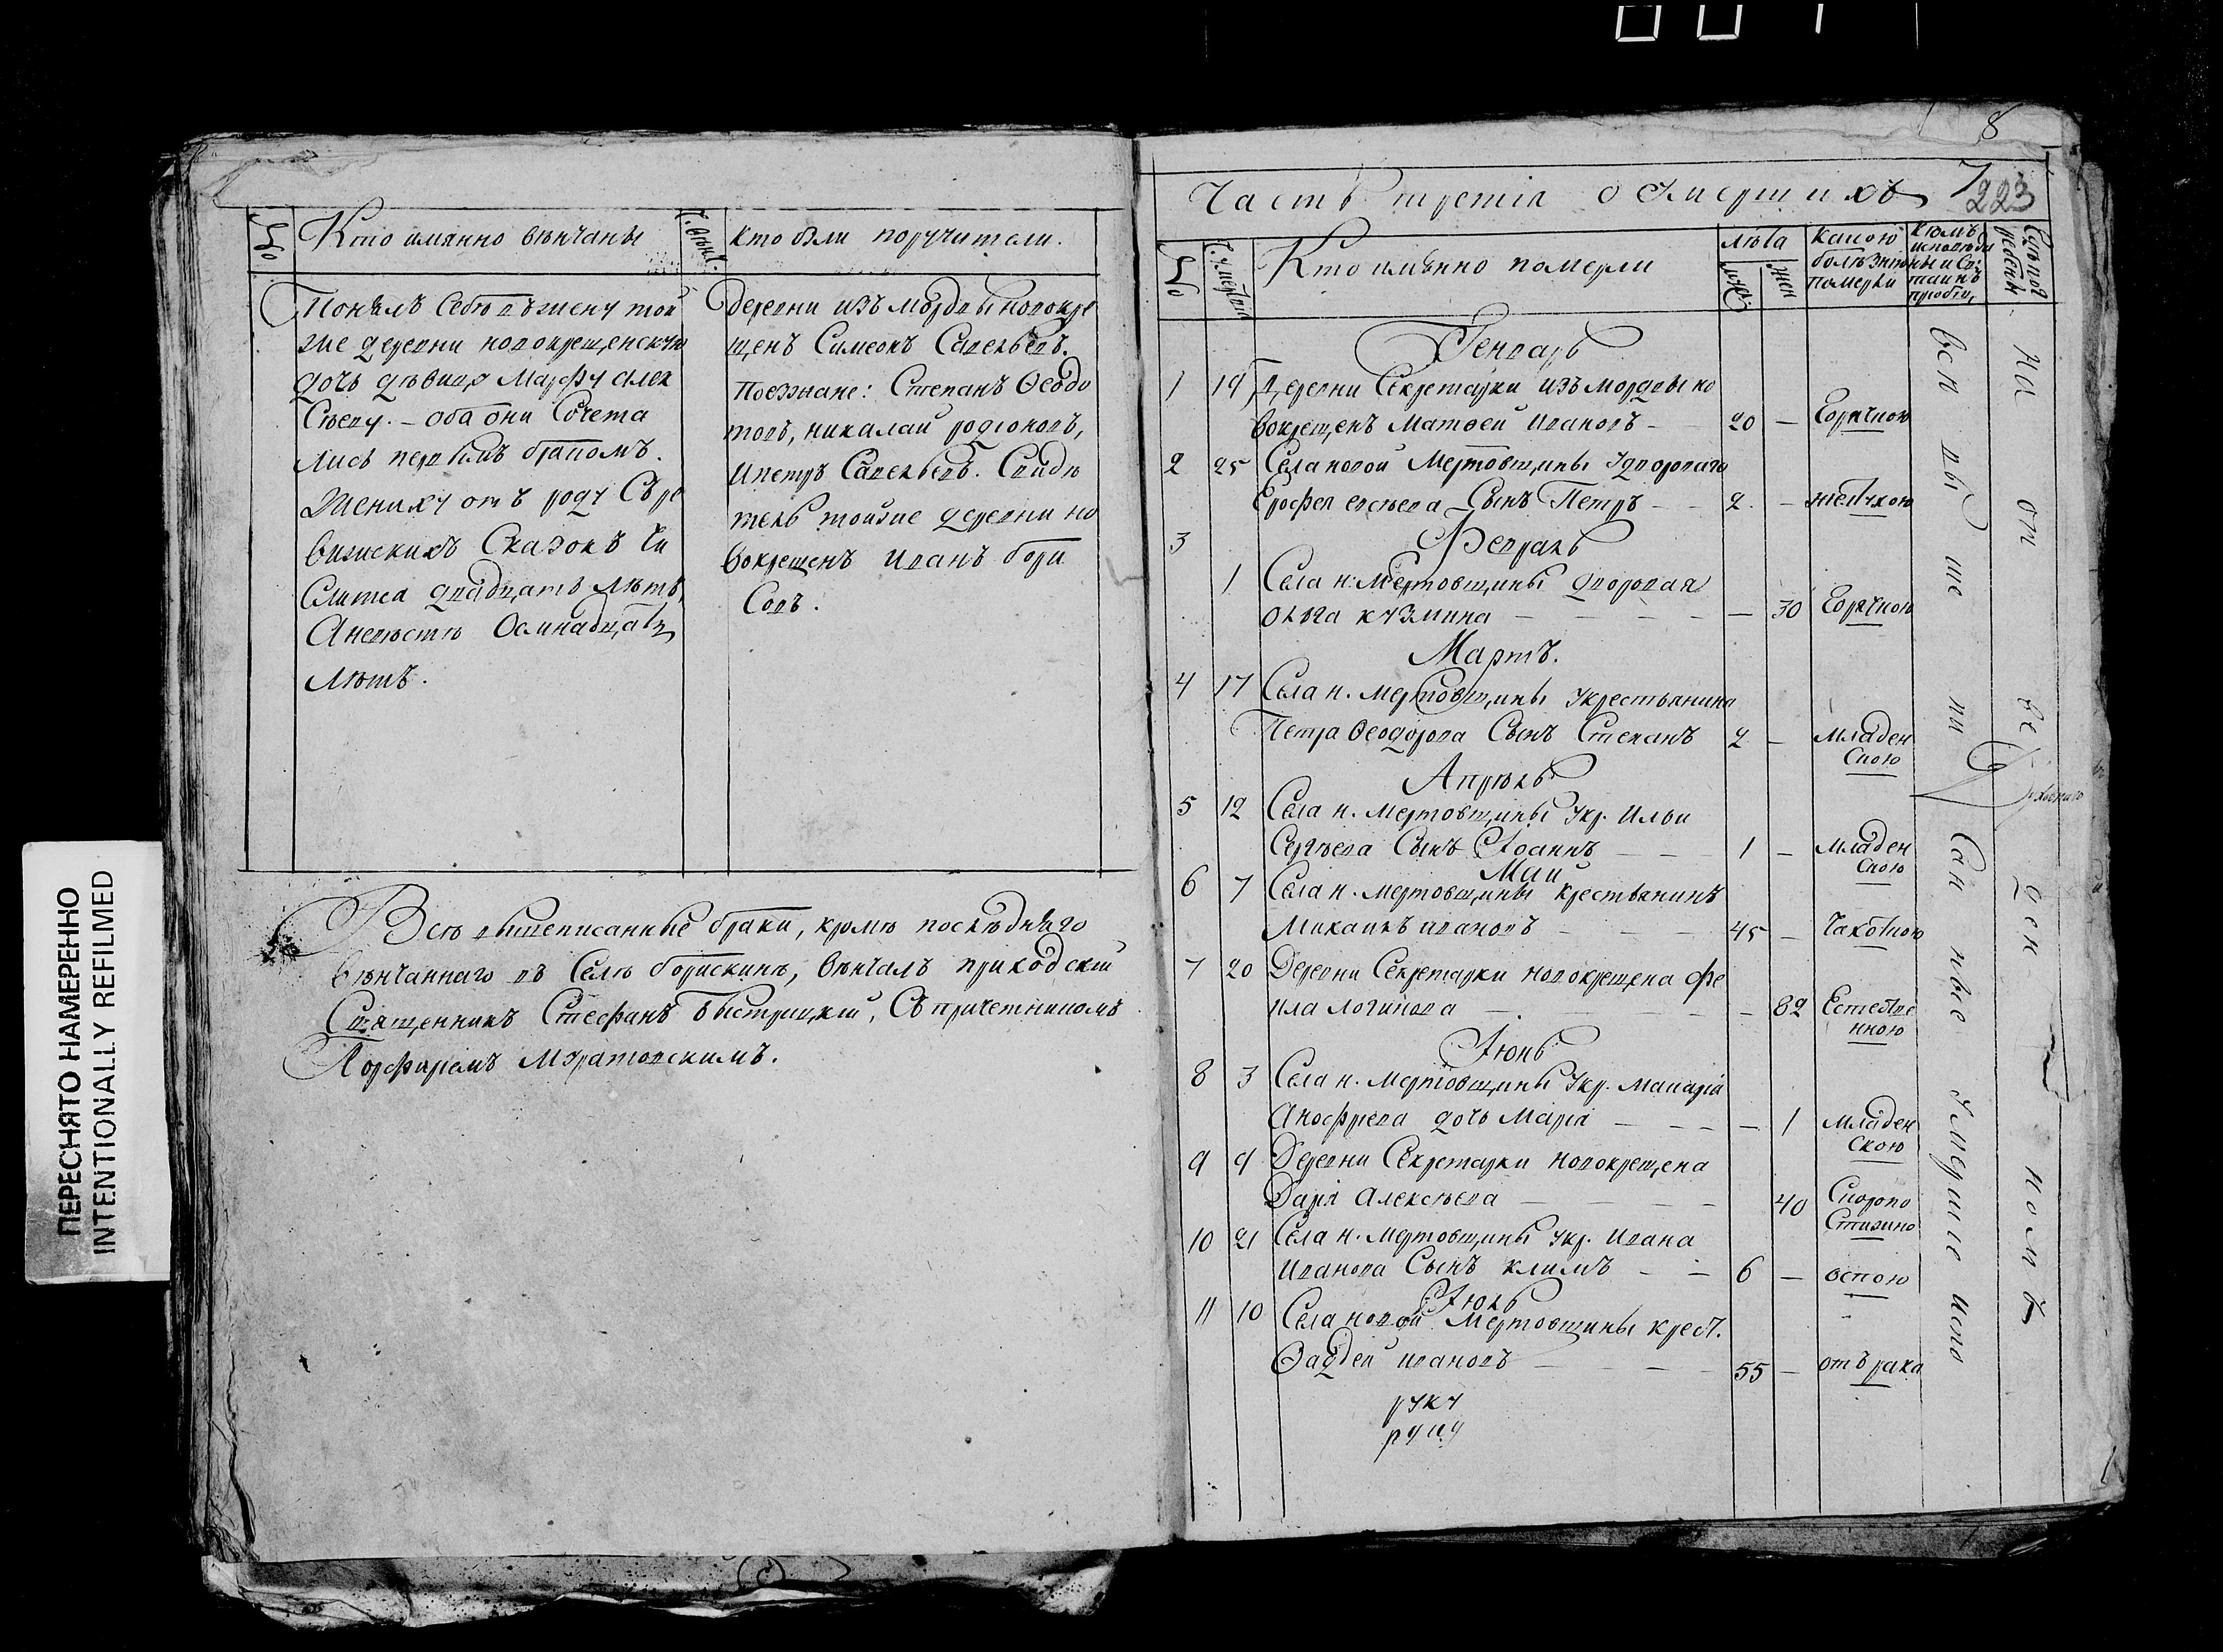 ПЕРЕСНЯТО НАМЕРЕННО
INTENTIONALLY REFILMED
№
Кто имянно венчаны
Кто были поручители.
Понялъ себѣ въ жену той
же деревни новокрещенскую
дочь девицу Марфу Алек
сѣеву. – оба они сочета
лись первымъ бракомъ.
Жениху отъ роду съ ре
вижскихъ сказокъ чи
слится двадцать лѣтъ,
а невѣстѣ осмнадцать
лѣтъ.
деревни изъ мордвы новокре
щенъ Симеонъ Савельевъ.
Поезжане: Степанъ Ѳедо
товъ, николай родионовъ,
и петръ Савельевъ. Свидѣ
тель тойже деревни но
вокрещенъ иванъ бори
совъ.
Всѣ вышеписанные браки, кромѣ послѣдняго
вѣнчаннаго въ селѣ борискинѣ, вѣнчалъ приходскій
Священникъ Стефанъ Быстрицкій, съ причетникомъ
Порфиремъ Муратовскимъ.
8
Часть третія о умершихъ
7
223
№
Ч. умертвія
Кто имянно померли
лѣта
муж.
жен
какою
болѣзнію
померли
кемъ
исповѣды
ны и Св:
таинъ
приобщ.
Генварь
1 19 Деревни Секретарки изъ мордвы но
вокрещенъ Матѳей Ивановъ – 20 – Горячкою
2 25 Села новой Мертовщины у двороваго
Ерофея евсѣева Сынъ Петръ – – 2. – желчкою
3 Февраль
1 Села н: Мертовщины дворовая
Ольга кузмина – – – – – 30 Горячкою
Мартъ.
4 17 Села н. Мертовщины у крестьянина
Петра Ѳеодорова Сынъ Степанъ 2 – Младен
скою
Апрѣль
5 12 Села н. Мертовщины у кр. Ильи
Сергѣева Сынъ Іоаннъ – – 1 – Младен
скою
Маи
6 7 Села н. Мертовщины крестьянинъ
Михаилъ ивановъ – – – 45 – Чахоткою
7 20 Деревни Секретарки новокрещена Фе
кла логинова – – – – – 82 Естестве
нною
Іюнь
8 3 Села н. Мертовщины у кр. Макарія
Анофрева дочь Марія – – – – 1 Младен
скою
9 9 Деревни Секретарки новокрещена
Дарія Алексѣева – – – – 40 Скоропо
стижно
10 21 Села н. Мертовщины у кр. Ивана
Иванова Сынъ климъ – – 6 – оспою
Іюль
11 10 Села новой Мертовщины крест.
Ѳаддеи ивановъ – – – 55 – отъ рака
руку
руку